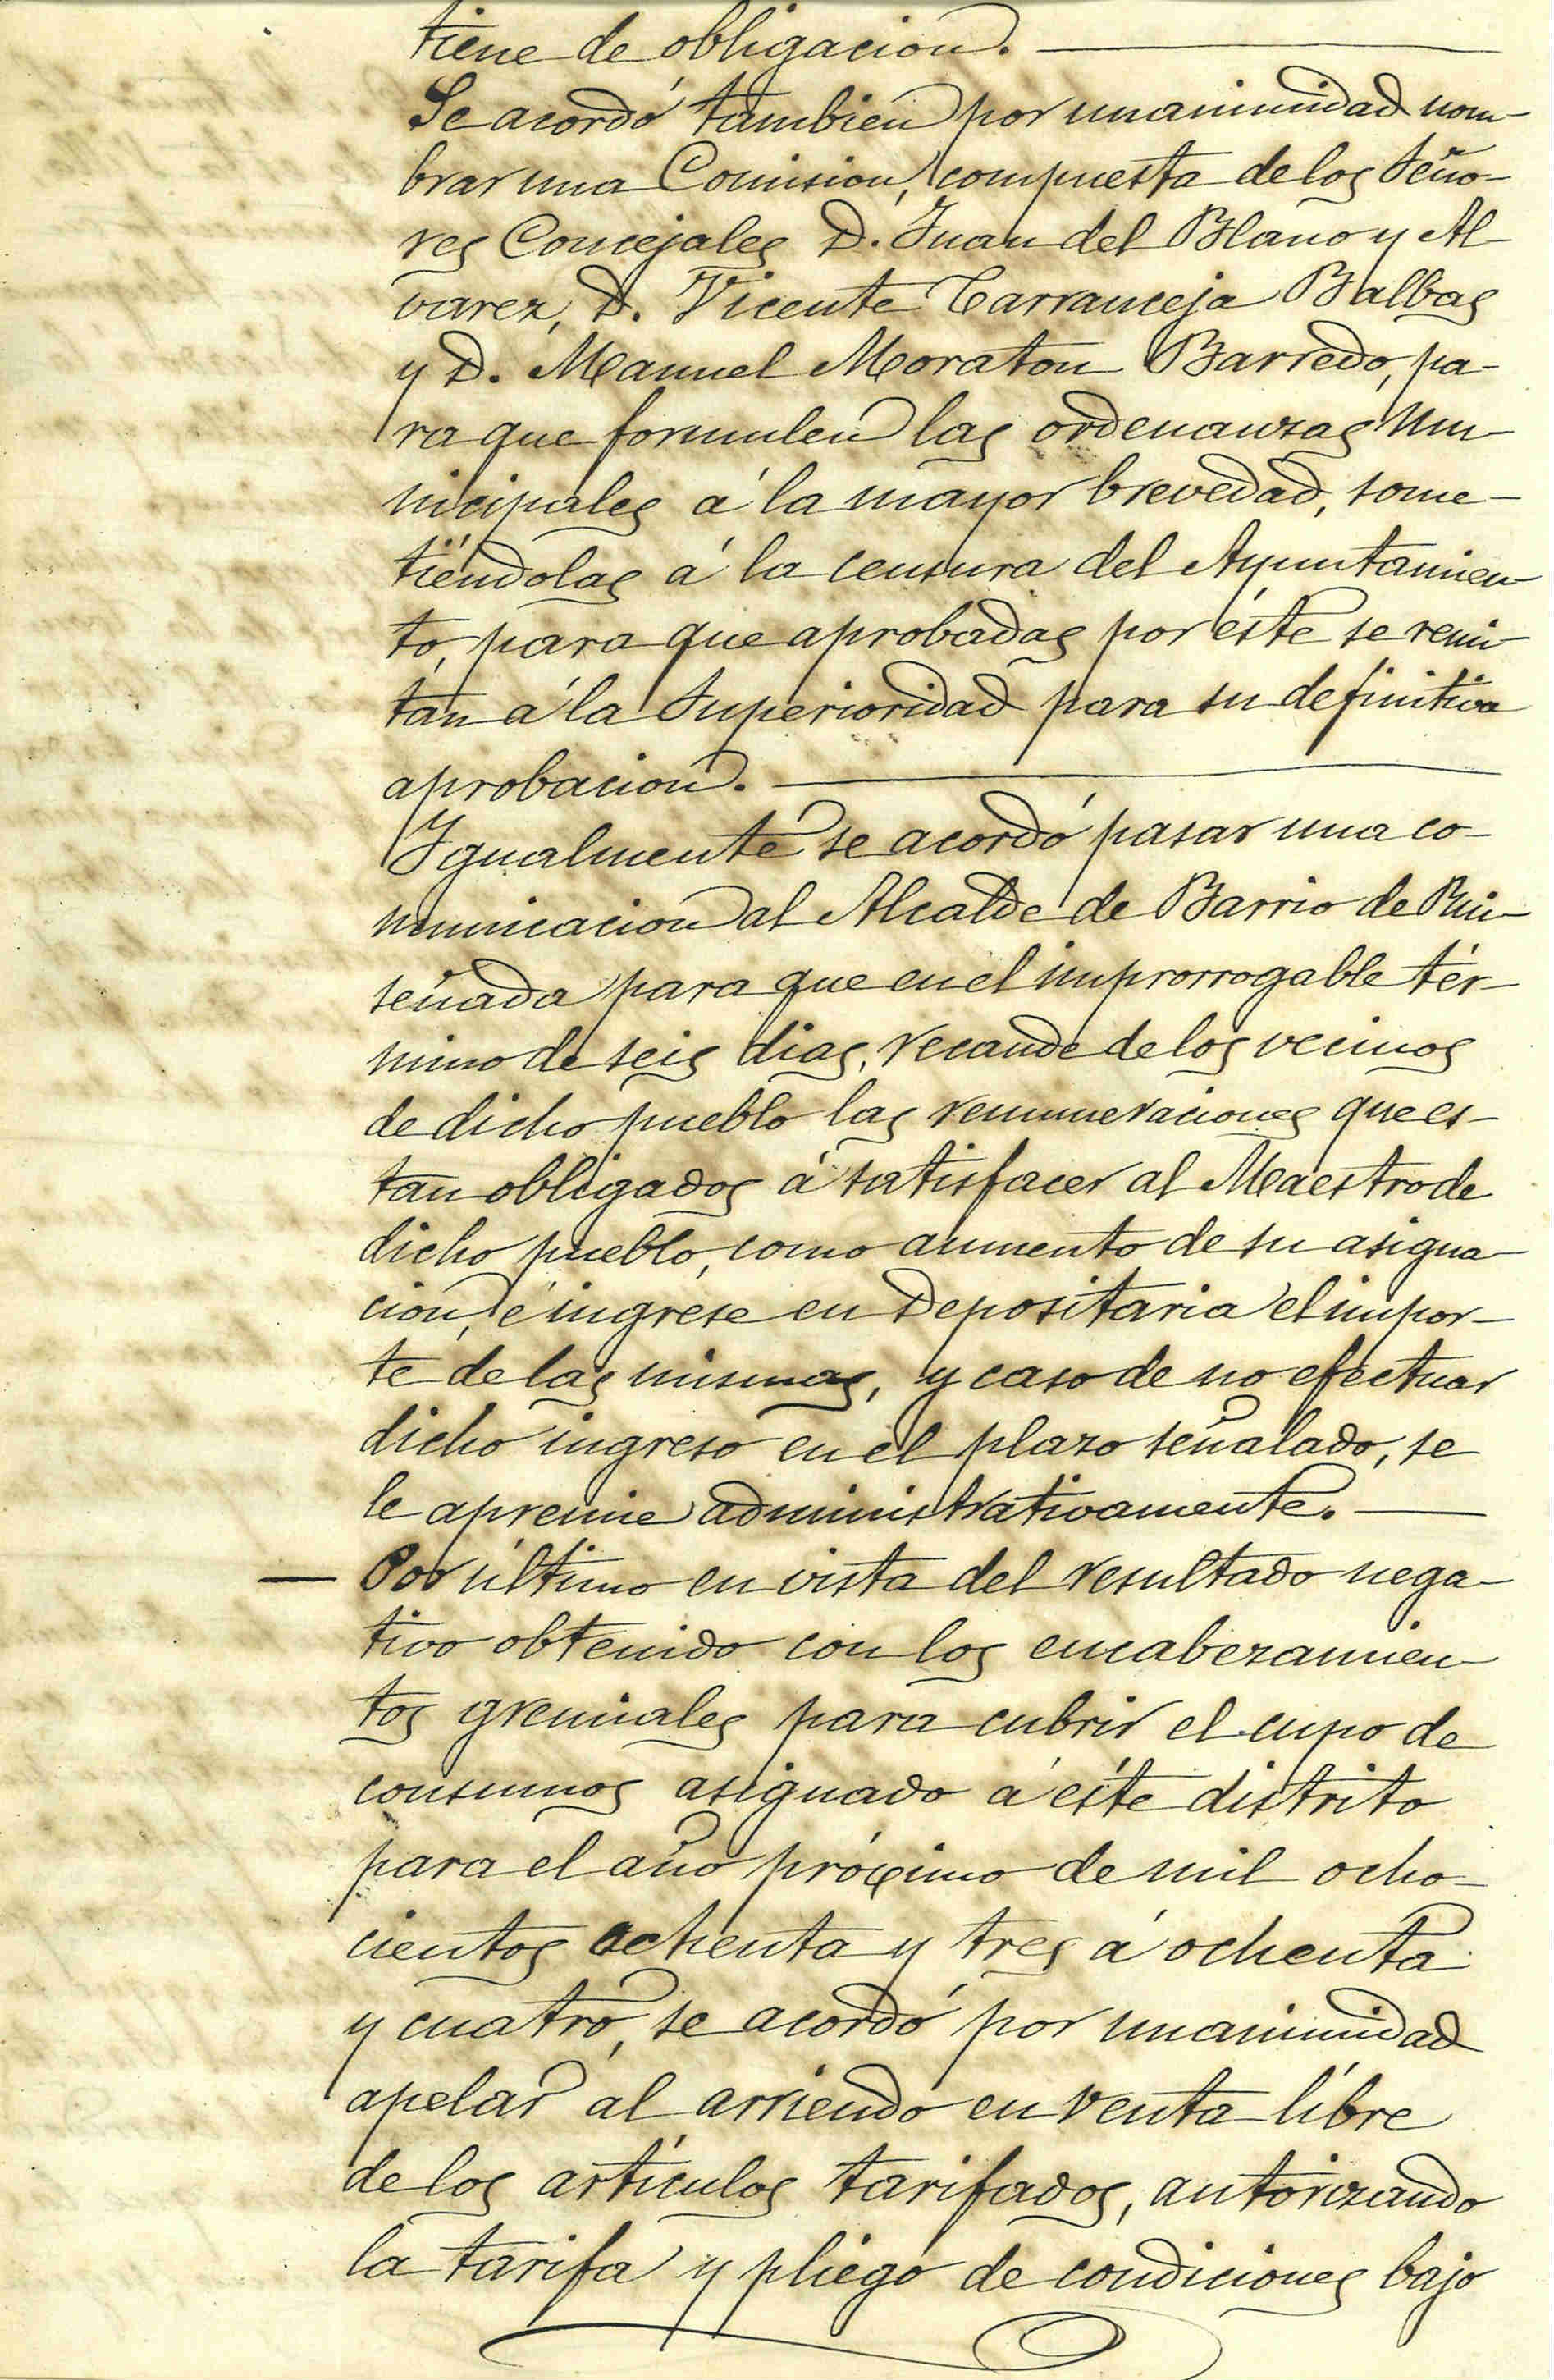 tiene de obligacion.
Se acordó tambien por unanimidad nom-
brar una Comision, compuesta de los Seño-
res Concejales D. Juan del Blano y Al-
varez, D. Vicente Tarranceja Balbas
y D. Manuel Moraton Barredo, pa-
ra que formulen las ordenanzas Mu-
nicipales á la mayor brevedad, some-
tiéndolas á la censura del Ayuntamien-
to, para que aprobadas por éste se remi-
tan á la Superioridad para su definitiva
aprobacion.
Igualmente se acordó pasar una co-
municacion al Alcalde de Barrio de Rui-
señada para que en el improrrogable tér-
mino de seis dias, recaude de los vecinos
de dicho pueblo las remuneraciones que es-
tan obligados á satisfacer al Maestro de
dicho pueblo, como aumento de su asigna-
cion, é ingrese en Depositaria el impor-
te de las mismas, y caso de no efectuar
dicho ingreso en el plazo señalado, se
le apremie administrativamente.
— Por último en vista del resultado nega-
tivo obtenido con los encabezamien-
tos gremiales para cubrir el cupo de
consumos asignado á éste distrito
para el año próximo de mil ocho-
cientos ochenta y tres á ochenta
y cuatro, se acordó por unanimidad
apelar al arriendo en venta libre
de los artículos tarifados, autorizando
la tarifa y pliego de condiciones bajo